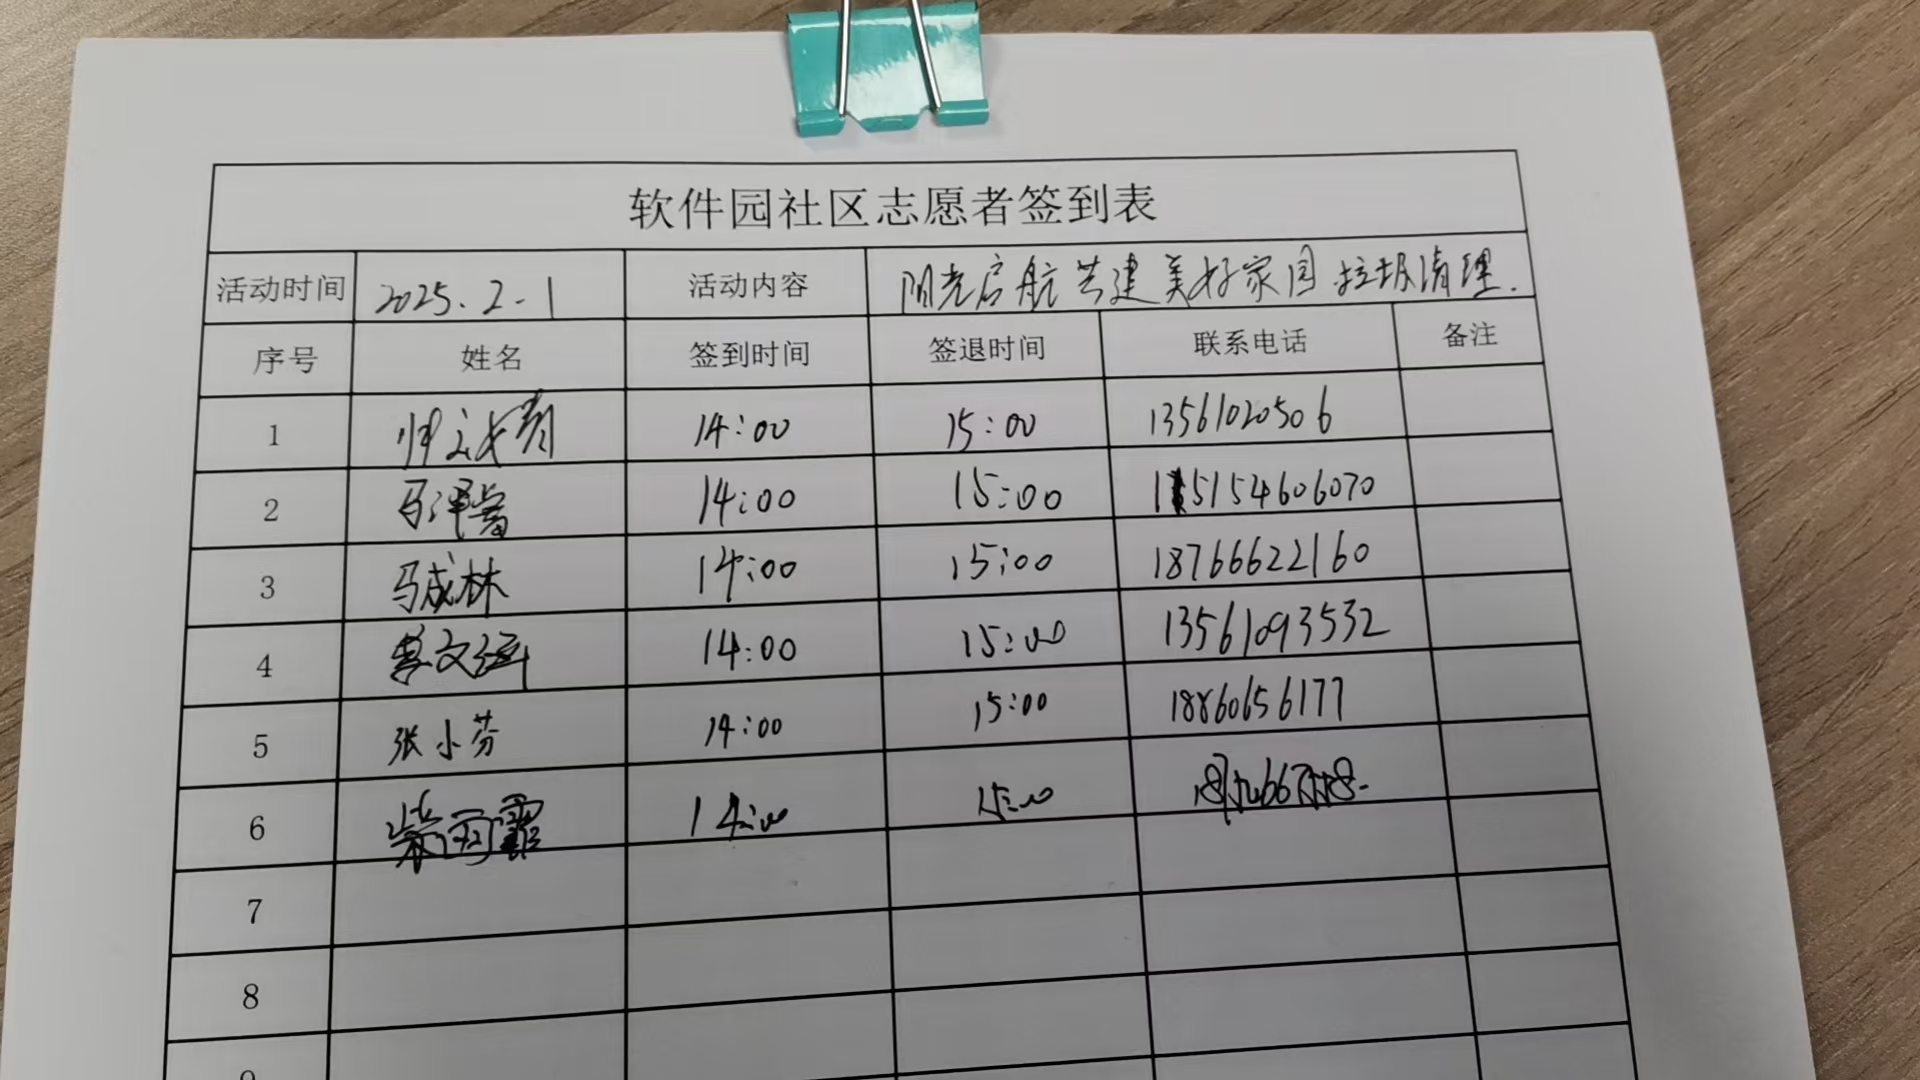 软件园社区志愿者签到表
活动时间 2025.2-1 活动内容 阳光启航共建美好家园垃圾清理.
序号 姓名 签到时间 签退时间 联系电话 备注
1 14:00 15:00 13561020506
2 马泽睿 14:00 15:00 15154606070
3 马成林 14:00 15:00 18766622160
4 文 14:00 15:00 13561093532
5 张小芬 14:00 15:00 18860656177
6 柴雨霏 14:00 15:00
7
8
9